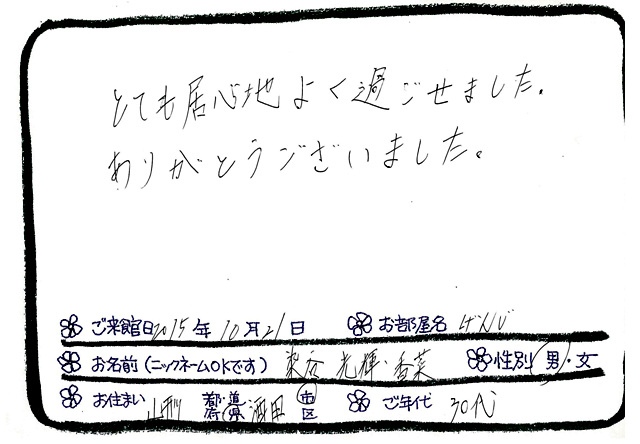 とても居心地よく過ごせました。
ありがとうございました。
ご来館日 2015年10月21日 お部屋名 げんじ
お名前(ニックネームOKです) 染谷 光輝・香菜 性別 男・女
お住まい 山形 都道府県 酒田 市区 ご年代 30代